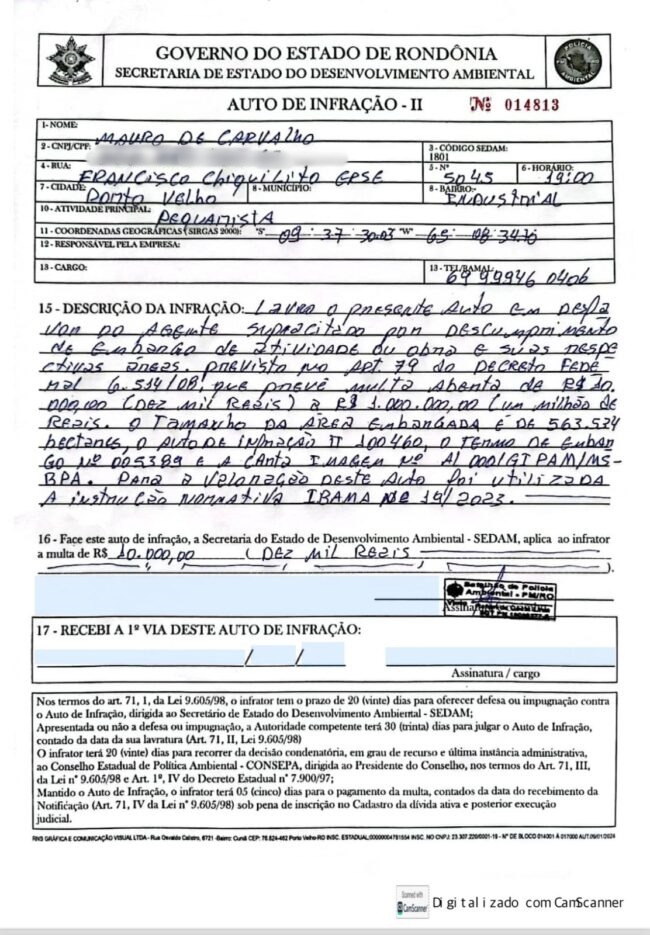 GOVERNO DO ESTADO DE RONDÔNIA
SECRETARIA DE ESTADO DO DESENVOLVIMENTO AMBIENTAL
POLÍCIA AMBIENTAL
AUTO DE INFRAÇÃO - II Nº 014813
1- NOME: MAURO DE CARVALHO
2 - CNPJ/CPF: 3 - CÓDIGO SEDAM: 1801
4 - RUA: FRANCISCO CHIQUILITO ERSE 5 - Nº 5045 6 - HORÁRIO: 19:00
7 - CIDADE: PORTO VELHO 8 - MUNICÍPIO: 8 - BAIRRO: INDUSTRIAL
10 - ATIVIDADE PRINCIPAL: PECUARISTA
11 - COORDENADAS GEOGRÁFICAS (SIRGAS 2000): "S" 09 : 37 30.03 "W" 65 : 08 34.70
12 - RESPONSÁVEL PELA EMPRESA:
13 - CARGO: 13 - TEL/RAMAL: 69 99946 0406
15 - DESCRIÇÃO DA INFRAÇÃO: LAVRO O PRESENTE AUTO EM DESFA
VOR DO AGENTE SUPRACITADO POR DESCUMPRIMENTO
DE EMBARGO DE ATIVIDADE OU OBRA E SUAS RESPE
CTIVAS ÁREAS. PREVISTO NO ART 79 DO DECRETO FEDE
RAL 6.514/08, QUE PREVÊ MULTA ABERTA DE R$ 10.
000,00 (DEZ MIL REAIS) A R$ 1.000.000,00 (UM MILHÃO DE
REAIS. O TAMANHO DA ÁREA EMBARGADA É DE 563.524
HECTARES, O AUTO DE INFRAÇÃO II 100460, O TERMO DE EMBAR
GO Nº 005389 E A CARTA IMAGEM Nº A1 000/GTPAM/MS-
BPA. PARA A VALORAÇÃO DESTE AUTO FOI UTILIZADA
A INSTRUÇÃO NORMATIVA IBAMA Nº 19/2023.
16 - Face este auto de infração, a Secretaria do Estado de Desenvolvimento Ambiental - SEDAM, aplica ao infrator
a multa de R$ 10.000,00 ( DEZ MIL REAIS
).
Batalhão de Polícia
Ambiental - PM/RO
Assinatura
17 - RECEBI A 1ª VIA DESTE AUTO DE INFRAÇÃO:
/ /
Assinatura / cargo
Nos termos do art. 71, 1, da Lei 9.605/98, o infrator tem o prazo de 20 (vinte) dias para oferecer defesa ou impugnação contra
o Auto de Infração, dirigida ao Secretário de Estado do Desenvolvimento Ambiental - SEDAM;
Apresentada ou não a defesa ou impugnação, a Autoridade competente terá 30 (trinta) dias para julgar o Auto de Infração,
contado da data da sua lavratura (Art. 71, II, Lei 9.605/98)
O infrator terá 20 (vinte) dias para recorrer da decisão condenatória, em grau de recurso e última instância administrativa,
ao Conselho Estadual de Política Ambiental - CONSEPA, dirigida ao Presidente do Conselho, nos termos do Art. 71, III,
da Lei nº 9.605/98 e Art. 1º, IV do Decreto Estadual nº 7.900/97;
Mantido o Auto de Infração, o infrator terá 05 (cinco) dias para o pagamento da multa, contados da data do recebimento da
Notificação (Art. 71, IV da Lei nº 9.605/98) sob pena de inscrição no Cadastro da dívida ativa e posterior execução
judicial.
RNS GRÁFICA E COMUNICAÇÃO VISUAL LTDA - Rua Osvaldo Calistro, 6721 -Bairro: Cuniã CEP: 76.824-462 Porto Velho-RO INSC. ESTADUAL:00000004781554 INSC. NO CNPJ: 23.307.220/0001-19 - Nº DE BLOCO 014001 À 017000 AUT.09/01/2024
Scanned with
CamScanner
Digitalizado com CamScanner